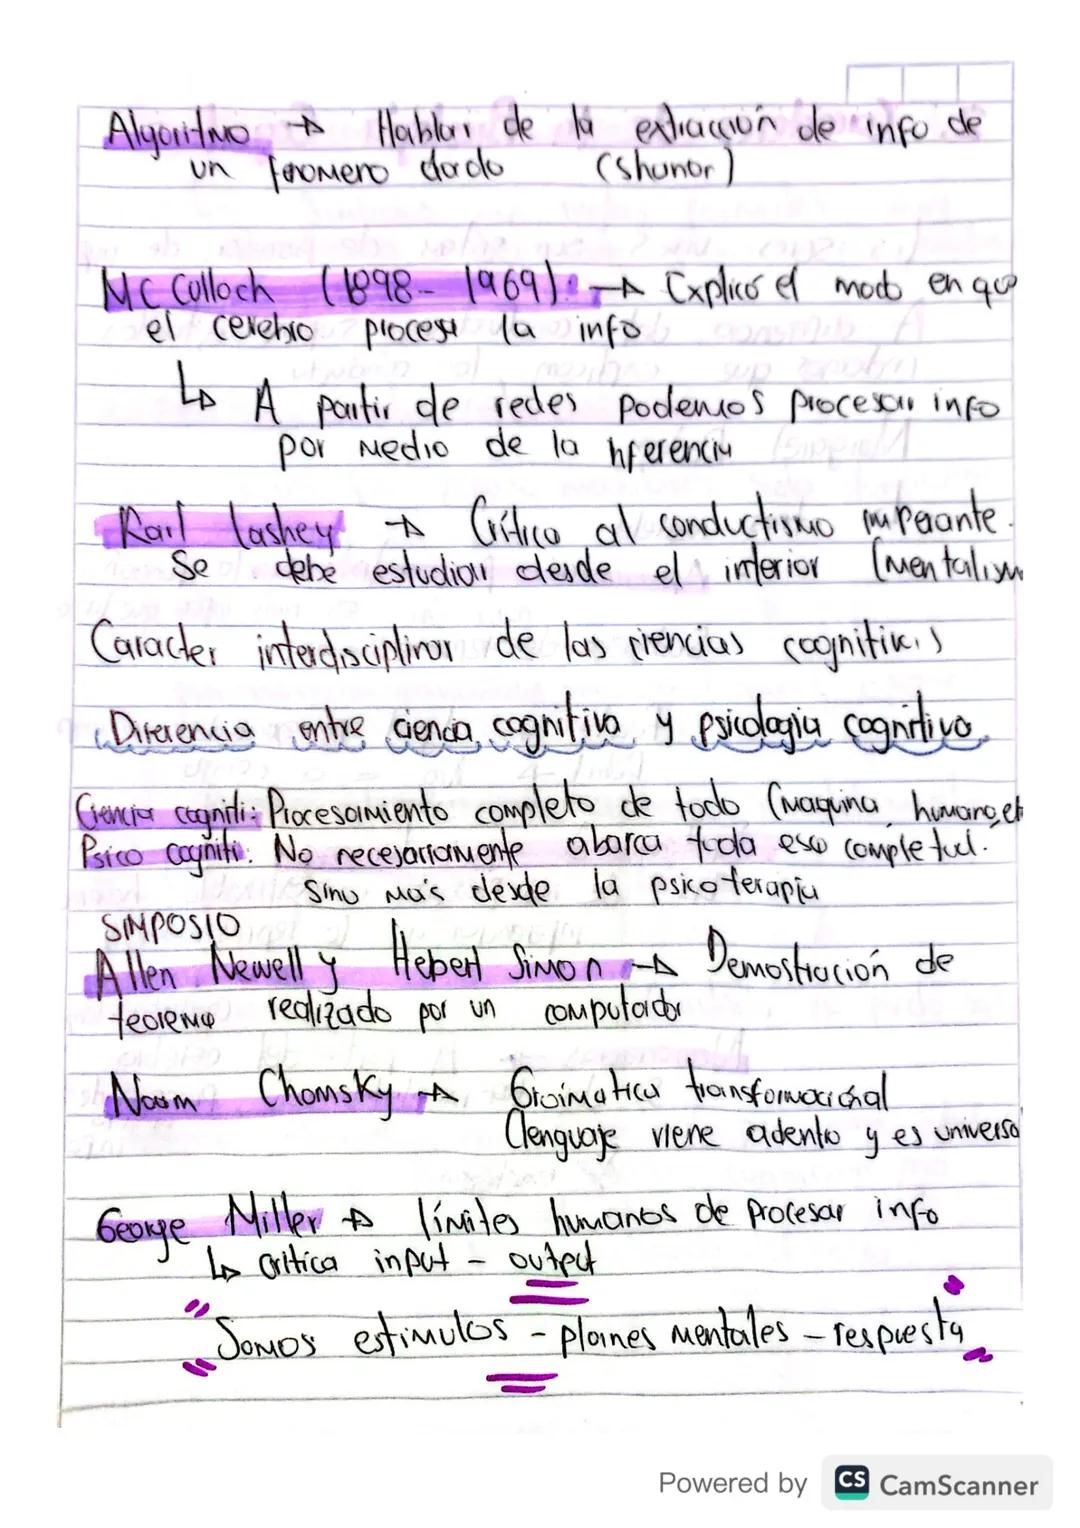 Algoritmo → Hablar de la extracción de info de
un fenomero dado (shanor)
Mc Culloch (1898- 1969): → Explicó el modo en que
el cerebro procesa la info
↳ A partir de redes podemos procesar info
por medio de la hferencia
Karl lashey → Crítica al conductismo imperante.
Se debe estudiar desde el interior (mentalism
Caracter interdisciplinar de las ciencias cognitivas
Diferencia entre ciencia cognitiva y psicologia cognitiva.
Ciencia cogniti: Procesamiento completo de todo (maquina, humano, et
Psico cogniti: No necesariamente abarca toda esa completud.
sino más desde la psicoterapia
SIMPOSIO
Allen Newell y Hebert Simon → Demostración de
teorema realizado por un computador
Noam Chomsky → Gramatica transformacional
Clenguaje viene adentro y es universa
George Miller → límites humanos de procesar info
↳ critica input - output
"Somos estimulos - planes mentales - respuesta"
Powered by CS CamScanner